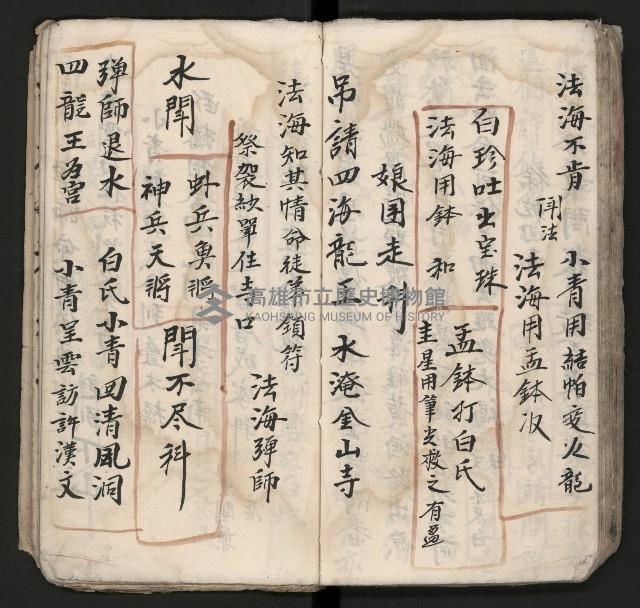 法海不肯 小青用結帕变火龍
鬥法
法海用盂鉢收
白珍吐出宝珠
法海用鉢 和
盂鉢打白氏
圭星用筆尖救之有孟
娘困走
吊請四海龍王 水淹金山寺
法海知其情命徒弟鎖符
祭袈紗罩住寺口
法海殫師
水閗
蚪兵魚將
神兵天將
閗不尽科
殫師退水
四龍王為宮
白氏小青回清風洞
小青呈雲訪許漢文
高雄市立歷史博物館
KAOHSIUNG MUSEUM OF HISTORY